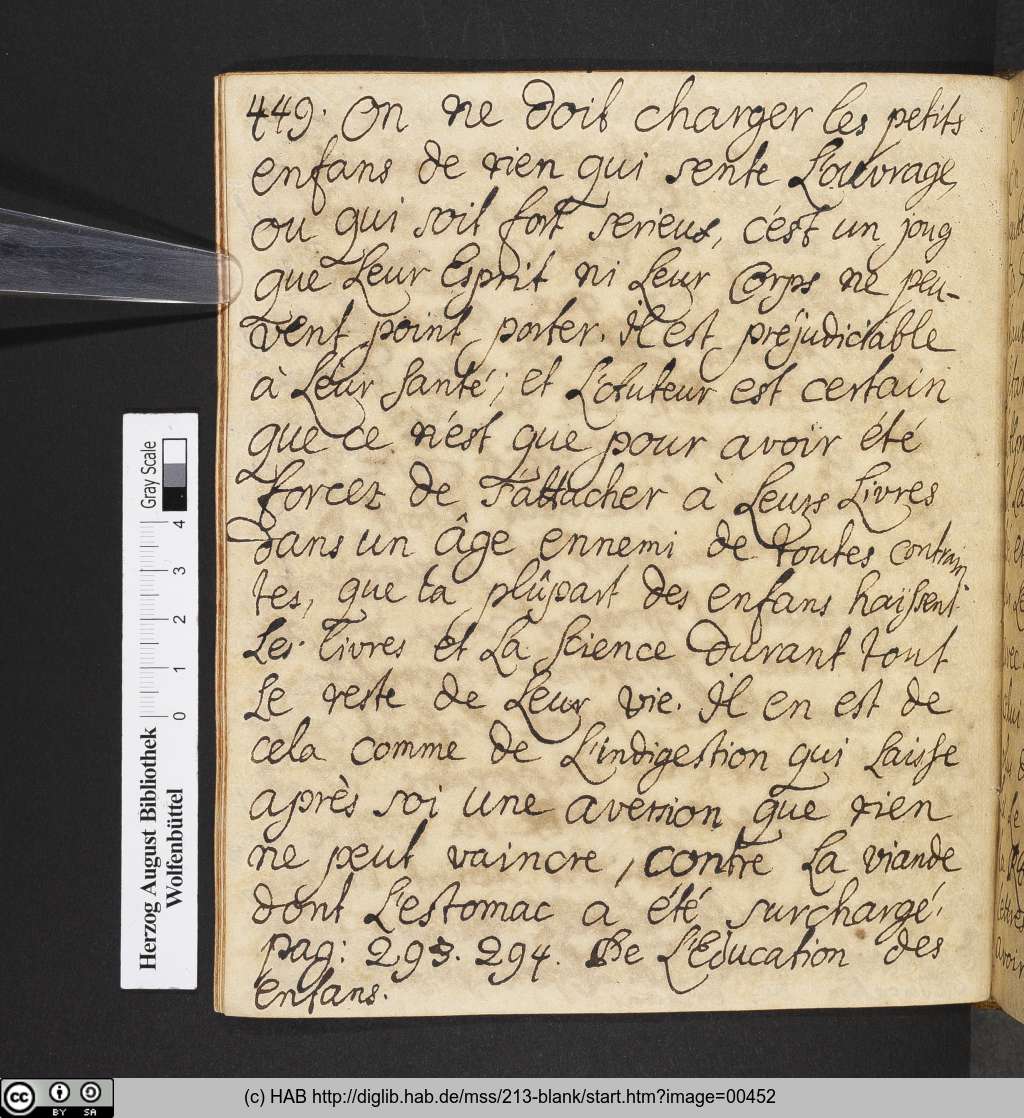 449. On ne doit charger les petits
enfans de rien qui sente L'ouvrage,
ou qui soit fort serieux, c'est un joug
que Leur Esprit ni Leur Corps ne peu-
vent point porter. Il est préjudiciable
à Leur santé; et L'Auteur est certain
que ce n'est que pour avoir été
forcez de s'attacher à Leurs Livres
dans un âge ennemi de toutes contrain
tes, que la plûpart des enfans haissent
Les Livres et La Science durant tout
Le reste de Leur vie. Il en est de
cela comme de L'indigestion qui Laisse
après soi une aversion que rien
ne peut vaincre, contre La viande
dont L'estomac a été surchargé.
pag: 293. 294. De L'Education des
enfans.
Herzog August Bibliothek
Wolfenbüttel
0 1 2 3 4
Gray Scale
cc BY SA
(c) HAB http://diglib.hab.de/mss/213-blank/start.htm?image=00452